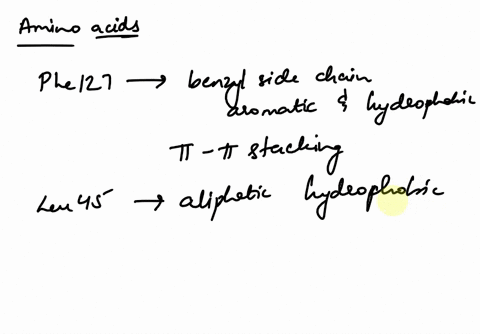 Amino acids
Phe127 → benzyl side chain
aromatic & hydrophobic
π-π stacking
Leu 45 → aliphatic hydrophobic